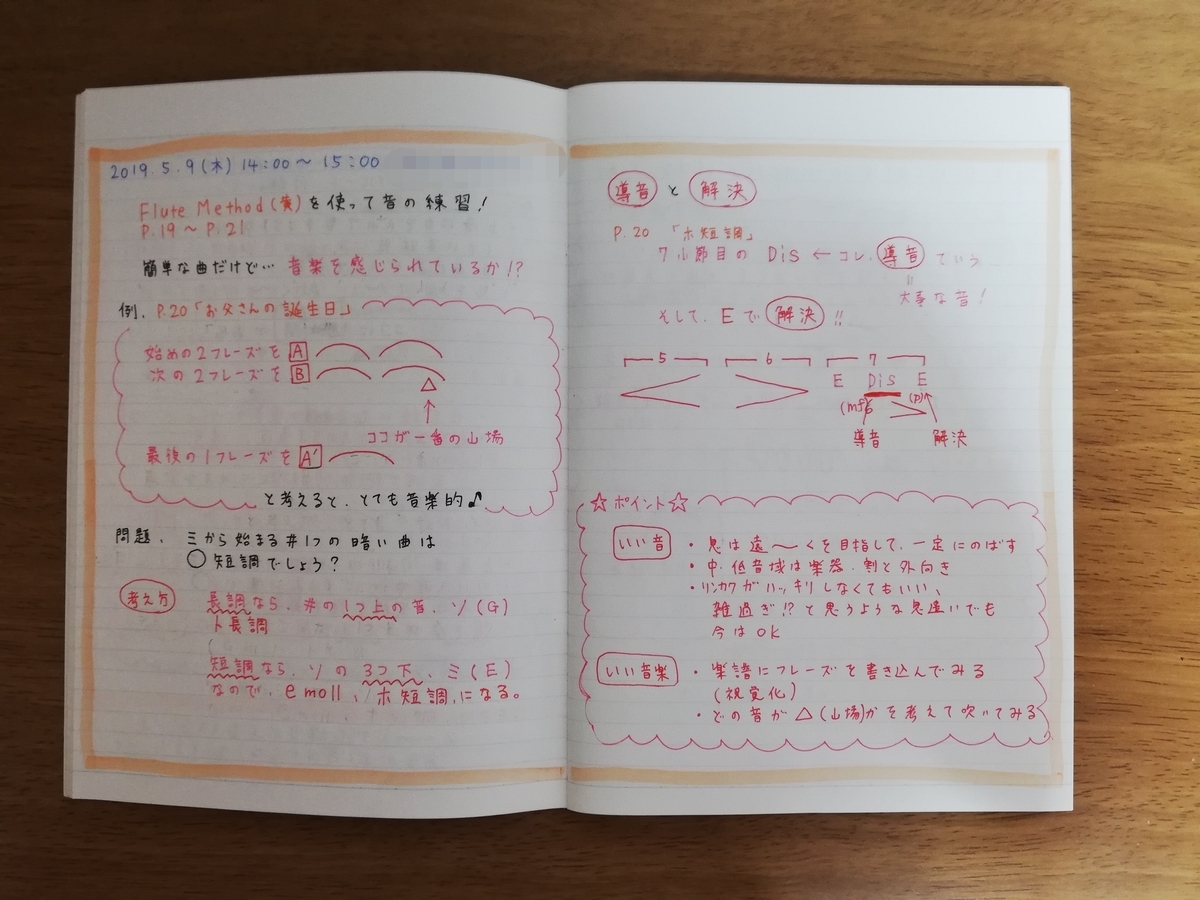 2019.5.9(木) 14:00〜15:00
Flute Method(黄)を使って音の練習!
P.19〜P.21
簡単な曲だけど… 音楽を感じられているか!?
例. P.20「お父さんの誕生日」
始めの2フレーズを A
次の2フレーズを B
△
↑
ココが一番の山場
最後の1フレーズを A'
と考えると、とても音楽的♪
問題. ミから始まる#1つの暗い曲は
○短調でしょう?
考え方 長調なら、#の1つ上の音、ソ(G)
ト長調
短調なら、ソの3つ下、ミ(E)
なので、e moll、ホ短調になる。
導音 と 解決
P.20 「ホ短調」
7小節目の Dis ← コレ、導音 ていう
=
大事な音!
そして、Eで 解決 !!
5 6 7
E Dis E
(mf) > (p)
導音 解決
☆ポイント☆
いい音 ・息は遠〜くを目指して、一定にのばす
・中・低音域は楽器、割と外向き
・リンカクがハッキリしなくてもいい、
雑過ぎ!?と思うような息遣いでも
今はOK
いい音楽 ・楽譜にフレーズを書き込んでみる
(視覚化)
・どの音が△(山場)かを考えて吹いてみる